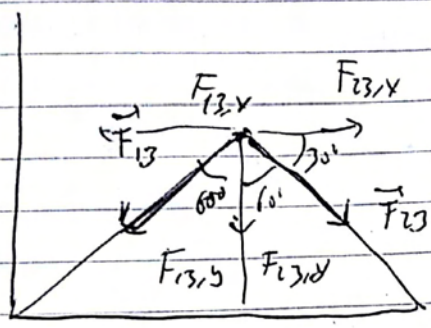 F13,x
F23,x
F⃗13
30°
60°
60°
F⃗23
F13,y F23,y